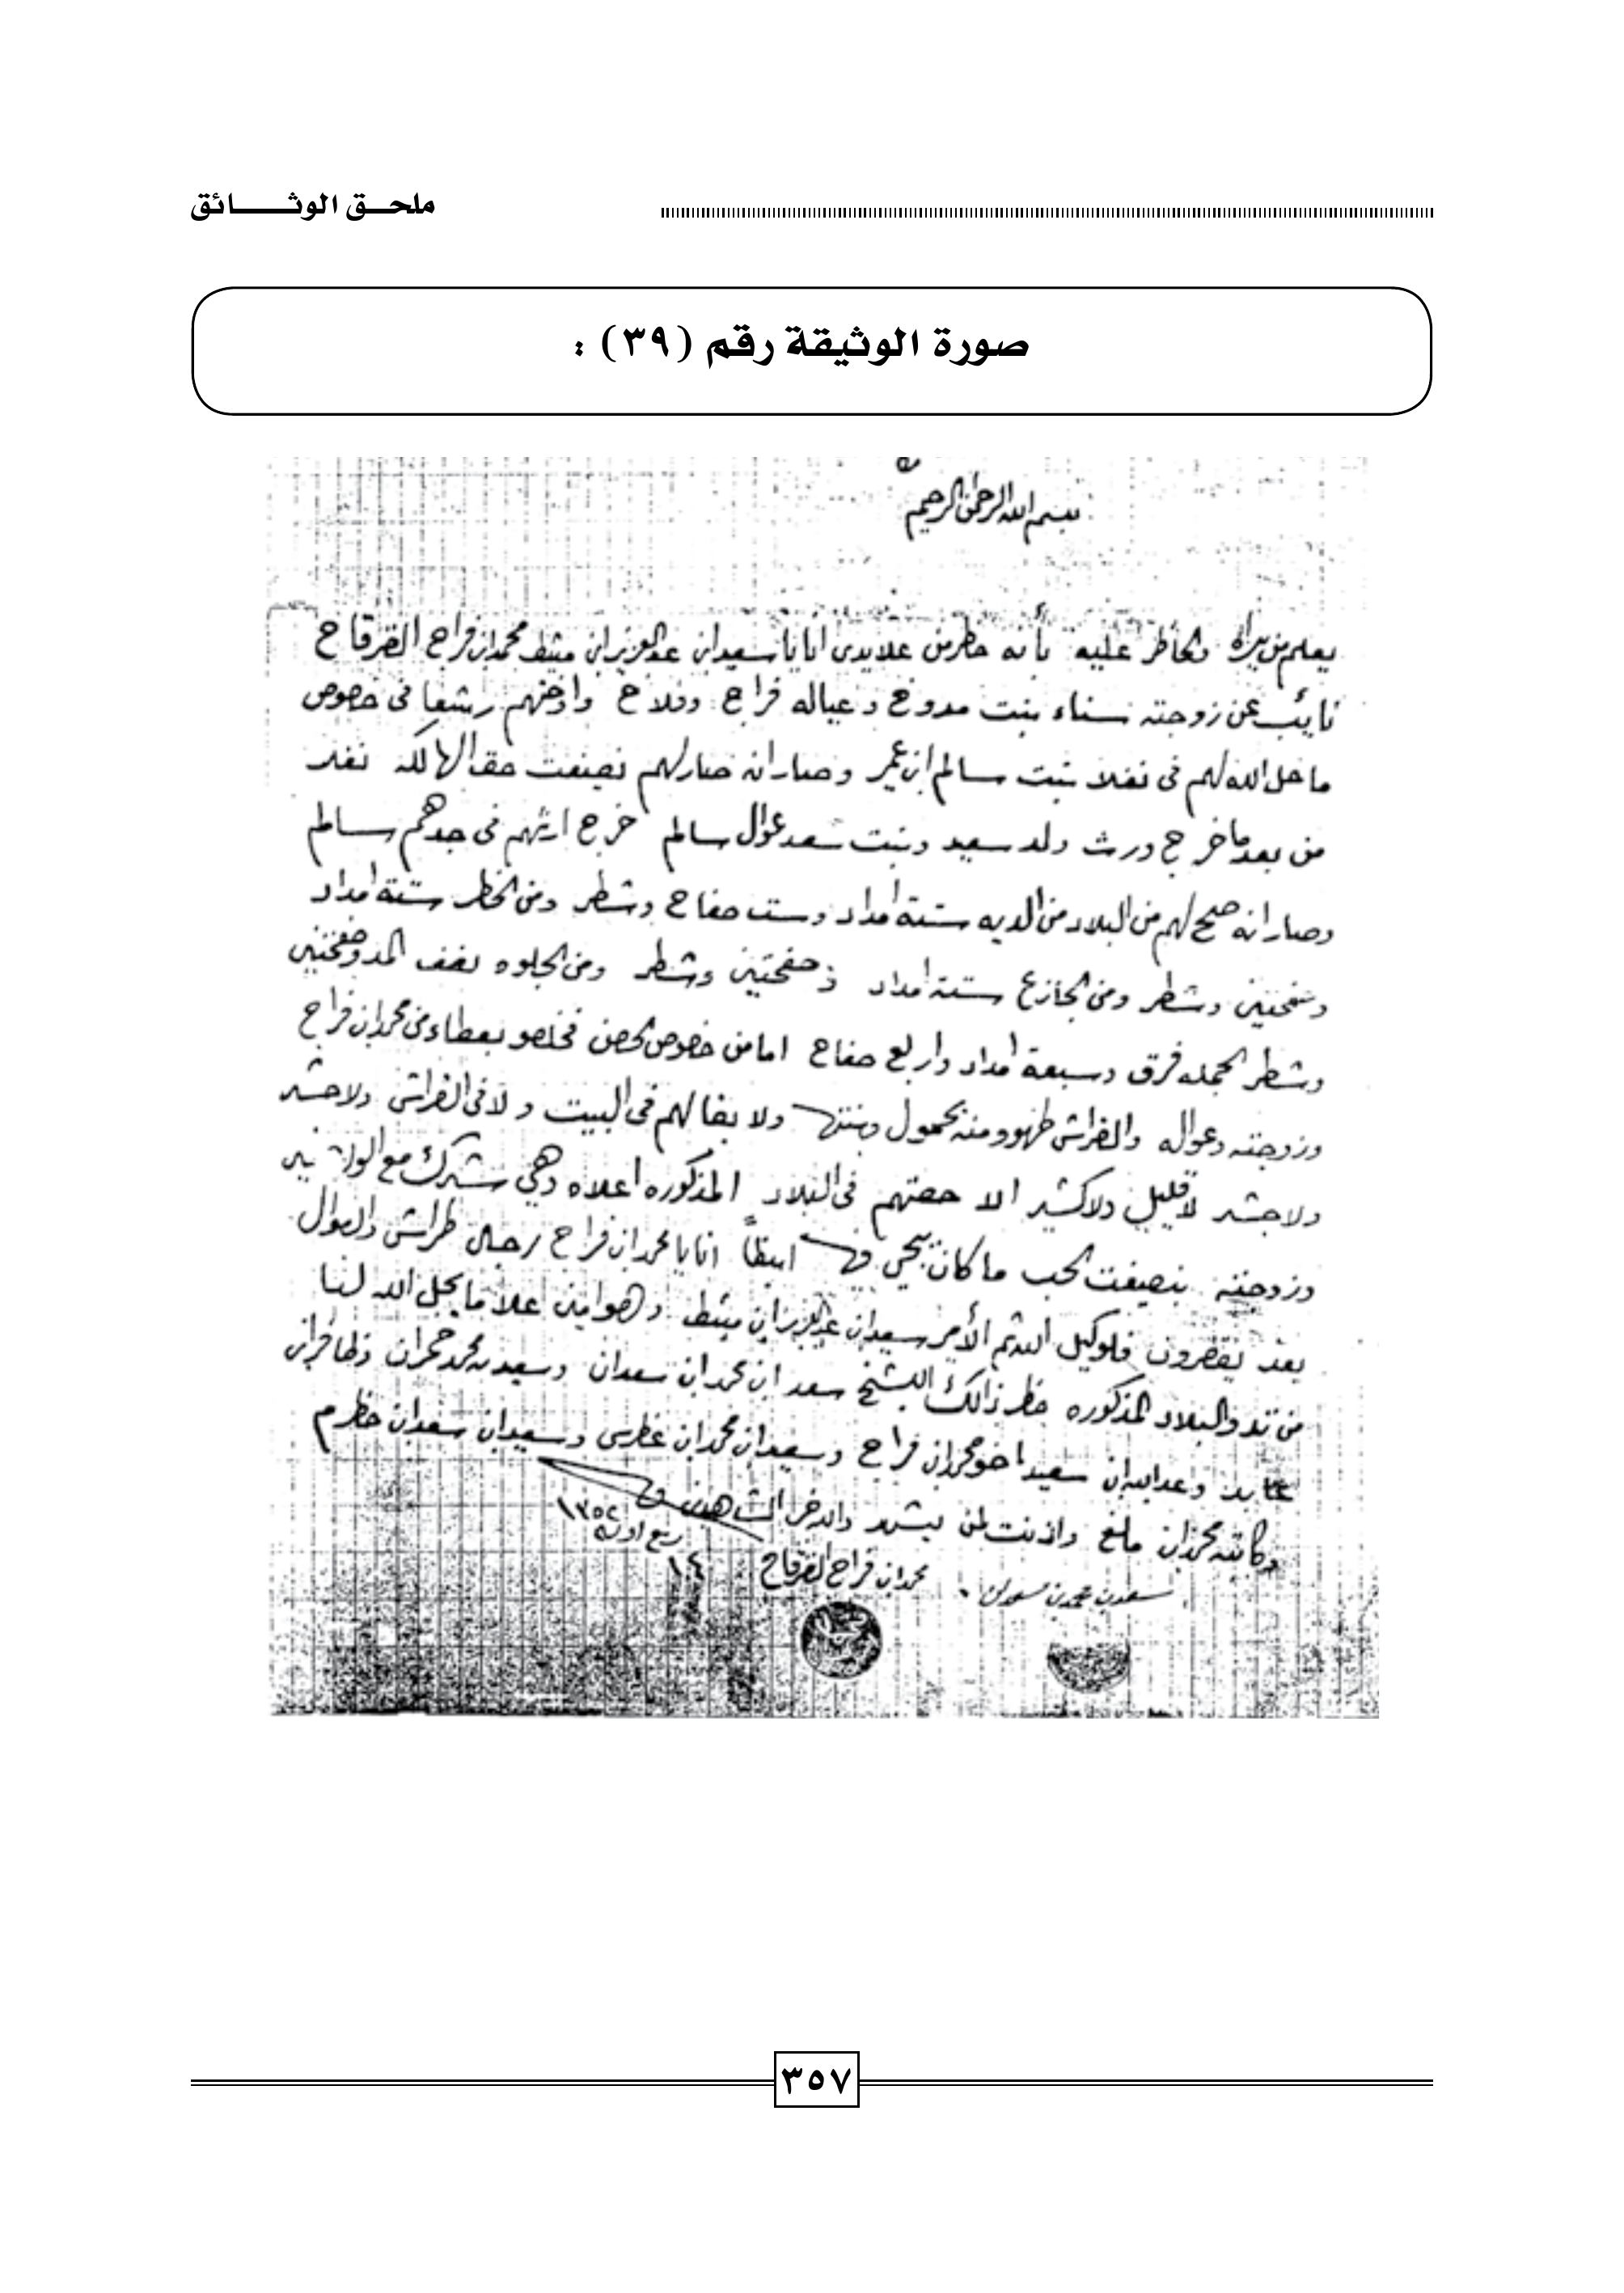 ملحق الوثائق
صورة الوثيقة رقم (٣٩) :
بسم الله الرحمن الرحيم
يعلم من يراه والحاظر عليه بأنه حظر من علا يدي انا يا سعيد ابن عبد العزيز ابن مشط محمد ابن فراج القرقاح
نايب عن زوجته سناء بنت مدوخ وعياله فراج وفلاح واختهم رشعا في خصوص
ما حل الله لهم في نفلا بنت سالم ابن عمر وصار انه صار لهم نصيفت حقالها لكه نفلا
من بعد ما خرج ورث ولد سعيد وبنت سعد عوال سالم خرج ارثهم في جدهم سالم
وصار انه صح لهم من البلاد من الديه ستة امداد وست صفاح وشطر ومن الحظر ستة امداد
وصفحتين وشطر ومن الجازع ستة امداد وصفحتين وشطر ومن الجلوه نصف المد وصفحتين
وشطر الجمله فرق وسبعة امداد واربع صفاح اما من خصوص الحصن فخلصو بعطاء من محمد ابن فراج
وزوجته وعواله والفراش ظهرو منه بحمول وبنتها ولا بقا لهم في البيت ولا في الفراش ولا حشد
ولا جشد لا قليل ولا كثير الا حصتهم في البلاد المذكوره اعلاه وهي شرك مع الوارثين
وزوجته بنصيفت الحب ما كان يجي فيها ايظاً انا يا محمد ابن فراج رجال طراش والعوال
بعد يقصرون فلوكيل الله ثم الأمير سعيد ابن عبد العزيز ابن مشط وهو امين علا ما يحل الله لنا
من تد والبلاد المذكوره حظر ذالك الشيخ سعد ابن محمد ابن سعدان وسعيد بن محمد حمران وظافر ابن
عايد وعبدالله ابن سعيد اخو محمد ابن فراج وسعيد ابن محمد ابن غطرسي وسعيد ابن سعد ابن حظرم
وكاتبه محمد ابن مانع واذنت لمن يشهد والله خير الشاهدين
١٣٥٢
ربيع اوله
١٤
محمد ابن فراج القرقاح
سعد بن محمد بن سعدان
٣٥٧